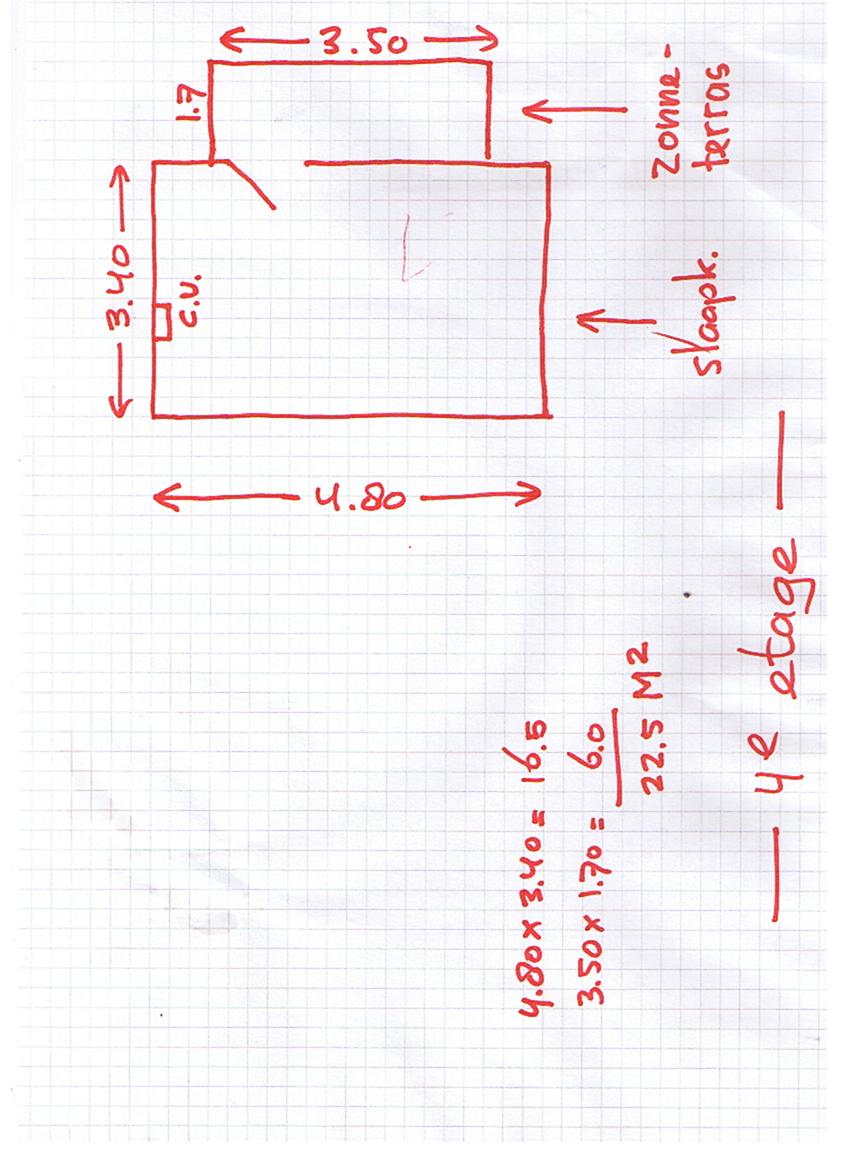 3.50
1.7
zonne-
terras
3.40
c.v.
slaapk.
4.80
4.80 x 3.40 = 16.5
3.50 x 1.70 = 6.0
22.5 M²
— 4e etage —